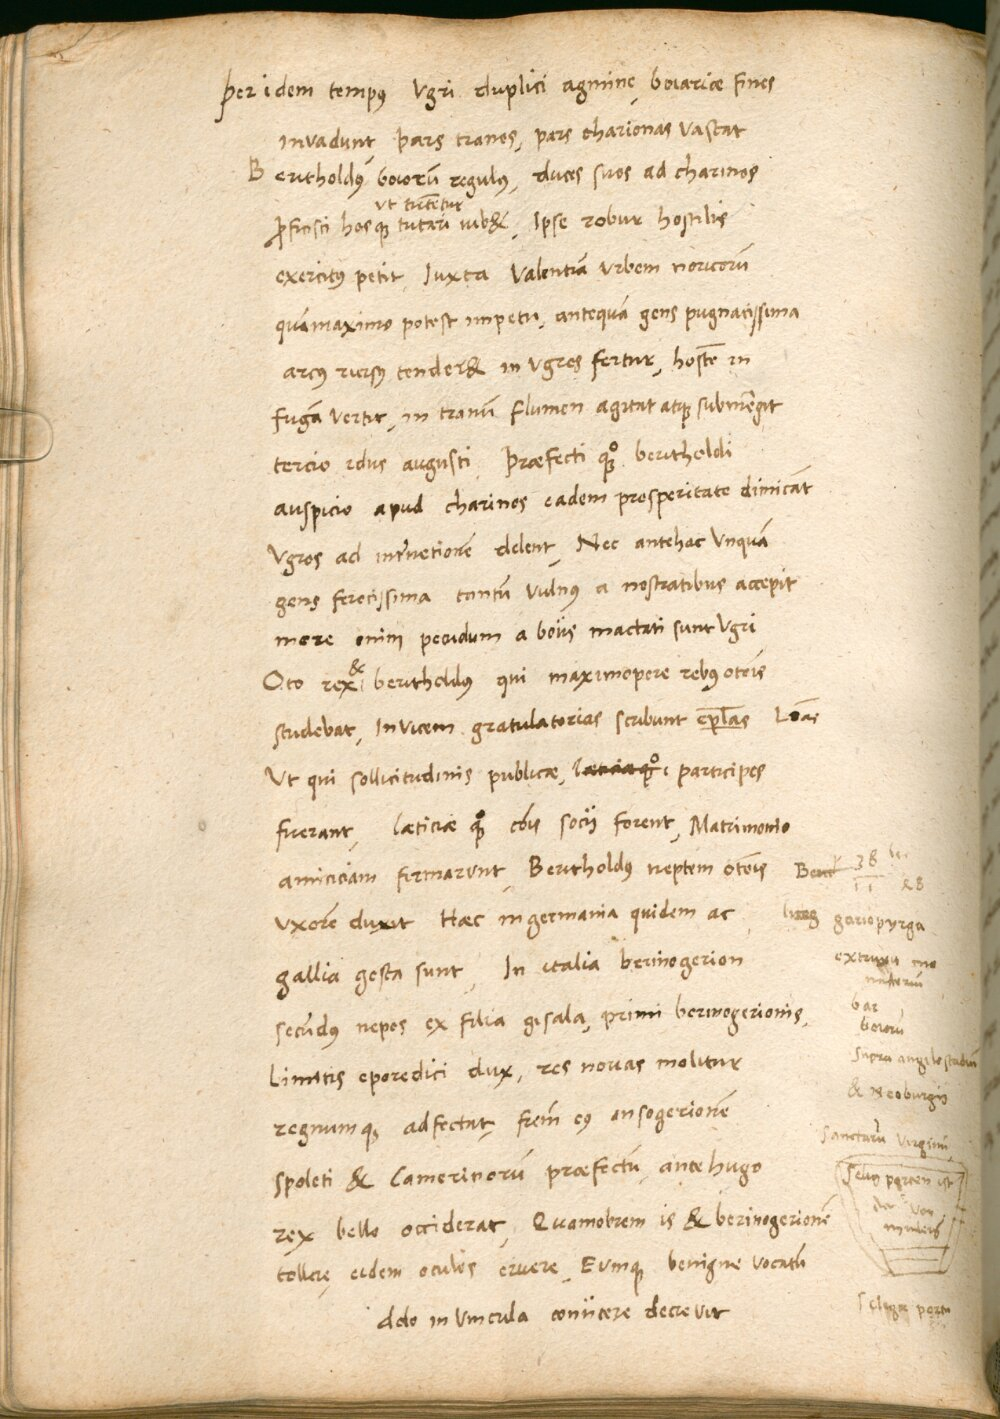 Per idem tempꝰ Vgri duplici agmine, boiariæ fines
invadunt pars tranos, pars charionas Vastat
Bertholdꝰ boiorū regulꝰ, duces suos ad charinos
ut tutētur
ꝓficisci hosqꝫ tutari iub&, Ipse robur hostilis
exercitꝰ petit Iuxta Valentiā Vrbem noricorū
quā maximo potest impetu, antequā gens pugnatissima
arcꝰ rursꝰ tender& in Vgros fertur, hostē in
fugā vertit, in tranū flumen agitat atqꝫ submergit
tercio idus augusti Præfecti qꝫᵒ bertholdi
auspicio apud charinos eadem prosperitate dimicāt
Vgros ad internetionē delent, Nec antehac Vnquā
gens ferocissima tantū Vulnꝰ a nostratibus accepit
more enim pecudum a boiis mactati sunt Vgri
Oto rex & bertholdꝰ qui maximopere rebꝰ otōis
studebat, Invicem gratulatorias scribunt ep̄las
Vt qui sollicitudinis publicæ, participes
fuerant, læticiæ qꝫᵒ cōis socij forent, Matrimonio
amiciciam firmarunt, Bertholdꝰ neptem otōis
Vxorē duxit Hæc in germania quidem ac
gallia gesta sunt, In italia beringerion
secūdꝰ nepos ex filia gisala, primi beringerionis,
Limitis eporedici dux, res novas molitur
regnumqꝫ adfectat, frēm eꝰ ansogerionē
spoleti & Camerinorū præfectū, ante hugo
rex bello occiderat, Quamobrem is & beringerionē
tollere, eidem oculos eruere, Eumqꝫ benigne vocatū
dolo in Vincula coniicere decrevit
38
11
28
burg geriopyrga
extruxit mo
nasteriū
bar
boiorū
Supra angilostadiū
& Neoburgū
Sanctarū Virginū